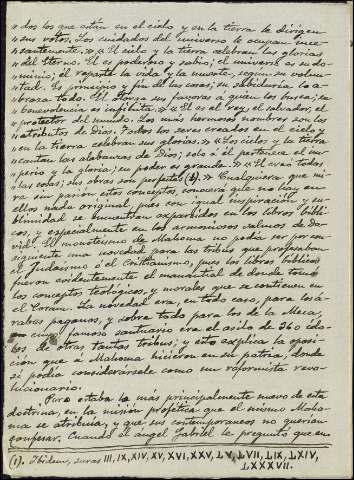 » dos los que están en el cielo y en la tierra le dirigen
» sus votos. Los cuidados del universo le ocupan ince-
» santemente. » « El cielo y la tierra celebran las glorias
» del Eterno. Él es poderoso y sabio; el universo es su do-
» minio; él reparte la vida y la muerte, según su volun-
» tad. Es principio y fin de las cosas; su sabiduría lo a-
» braza todo. Él otorga sus favores a quien los busca; su
» benevolencia es infinita. » « Él es el rey, el salvador, el
» protector del mundo. Los más hermosos nombres son los
» atributos de Dios. Todos los seres creados en el cielo y
» en la tierra celebran sus glorias. » « Los cielos y la tierra
» cantan las alabanzas de Dios; solo a él pertenece el im-
» perio y la gloria; su poder es grande. » « Él creó todas
» las cosas; sus obras son perfectas (1). » Cualquiera que mi-
re sin pasión estos conceptos, conocerá que no hay en
ellos nada original, pues con igual inspiración y su-
blimidad se encuentran esparcidos en los libros bíbli-
cos, y especialmente en los armoniosos salmos de Da-
vid. El monoteísmo de Mahoma no podía ser por con-
siguiente una novedad para las tribus que profesaban
el Judaísmo o el Cristianismo, pues los libros bíblicos
fueron evidentemente el manantial de donde tomó
los conceptos teológicos, y morales que se contienen en
el Coram. La novedad era, en todo caso, para los á-
rabes paganos, y sobre todo para los de la Meca,
en cuyo famoso santuario era el asilo de 360 ído-
los de otras tantas tribus; y esto explica la oposi-
ción que a Mahoma hicieron en su patria, donde
sí podía considerársele como un reformista revo-
lucionario.
Pero estaba lo más principalmente nuevo de esta
doctrina, en la misión profética que el mismo Maho-
ma se atribuía, y que sus contemporáneos no querían
confesar. Cuando el ángel Gabriel le preguntó que en
(1). Ibídem, suras III, IX, XIV, XV, XVI, XXV, LV, LVII, LIX, LXIV,
LXXXVII.